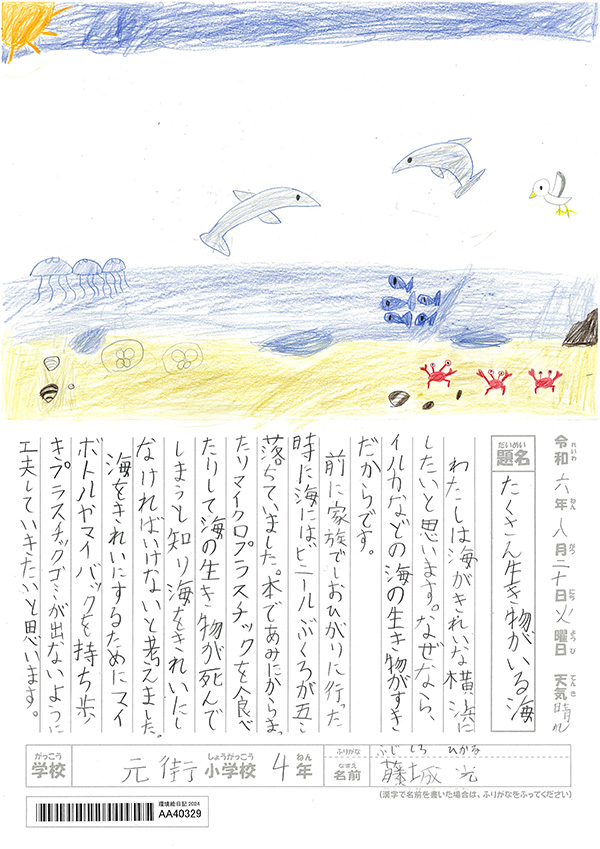 れいわ ねん がつ にち ようび てんき
令和六年八月二十日火曜日 天気 晴れ
だいめい
題名 たくさん生き物がいる海
わたしは海がきれいな横浜に
したいと思います。なぜなら、
イルカなどの海の生き物がすき
だからです。
前に家族でしおひがりに行った
時に海にはビニールぶくろが五こ
落ちていました。本であみにからまっ
たりマイクロプラスチックを食べ
たりして海の生き物が死んで
しまうと知り海をきれいにし
なければいけないと考えました。
海をきれいにするためにマイ
ボトルやマイバックを持ち歩
きプラスチックゴミが出ないように
工夫していきたいと思います。
がっこう しょうがっこう ねん
学校 元街 小学校 4年
ふりがな ふじしろ ひかる
なまえ
名前 藤城 光
(漢字で名前を書いた場合は、ふりがなをふってください)
環境絵日記 2024
AA40329